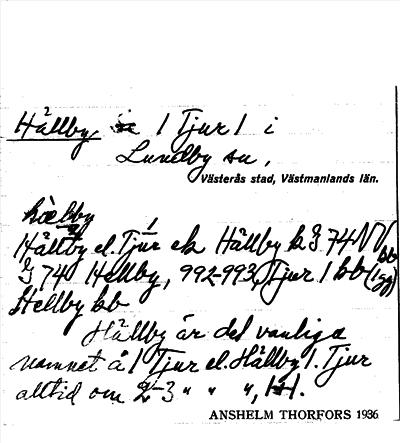 Hällby, 1 Tjur 1 i
Lundby sn,
Västerås stad, Västmanlands län.
hælby
Hällby el. Tjur ek Hällby k§ 74 NV
§ 74 Hellby, 992-993, Tjur 1 bb
Hellby bb
Hällby är det vanliga
namnet å 1 Tjur el. Hällby 1. Tjur
alltid om 2-3 " " ",
ANSHELM THORFORS 1936